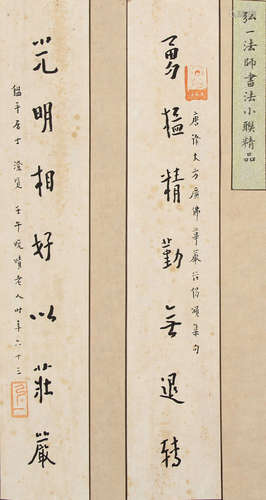 弘一法師書法小聯精品
勇猛精勤無退轉
唐譯大方廣佛華嚴經偈頌集句
光明相好以莊嚴
士澄覽 壬午晚晴老人時年六十三